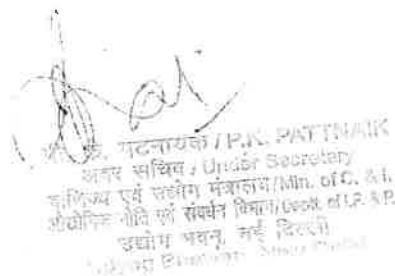 पटनायक / P.K. PATTNAIK
अवर सचिव / Under Secretary
वाणिज्य एवं उद्योग मंत्रालय/Min. of C. & I.
औद्योगिक नीति एवं संवर्धन विभाग/Deptt. of I.P. & P.
उद्योग भवन, नई दिल्ली
Udyog Bhawan, New Delhi